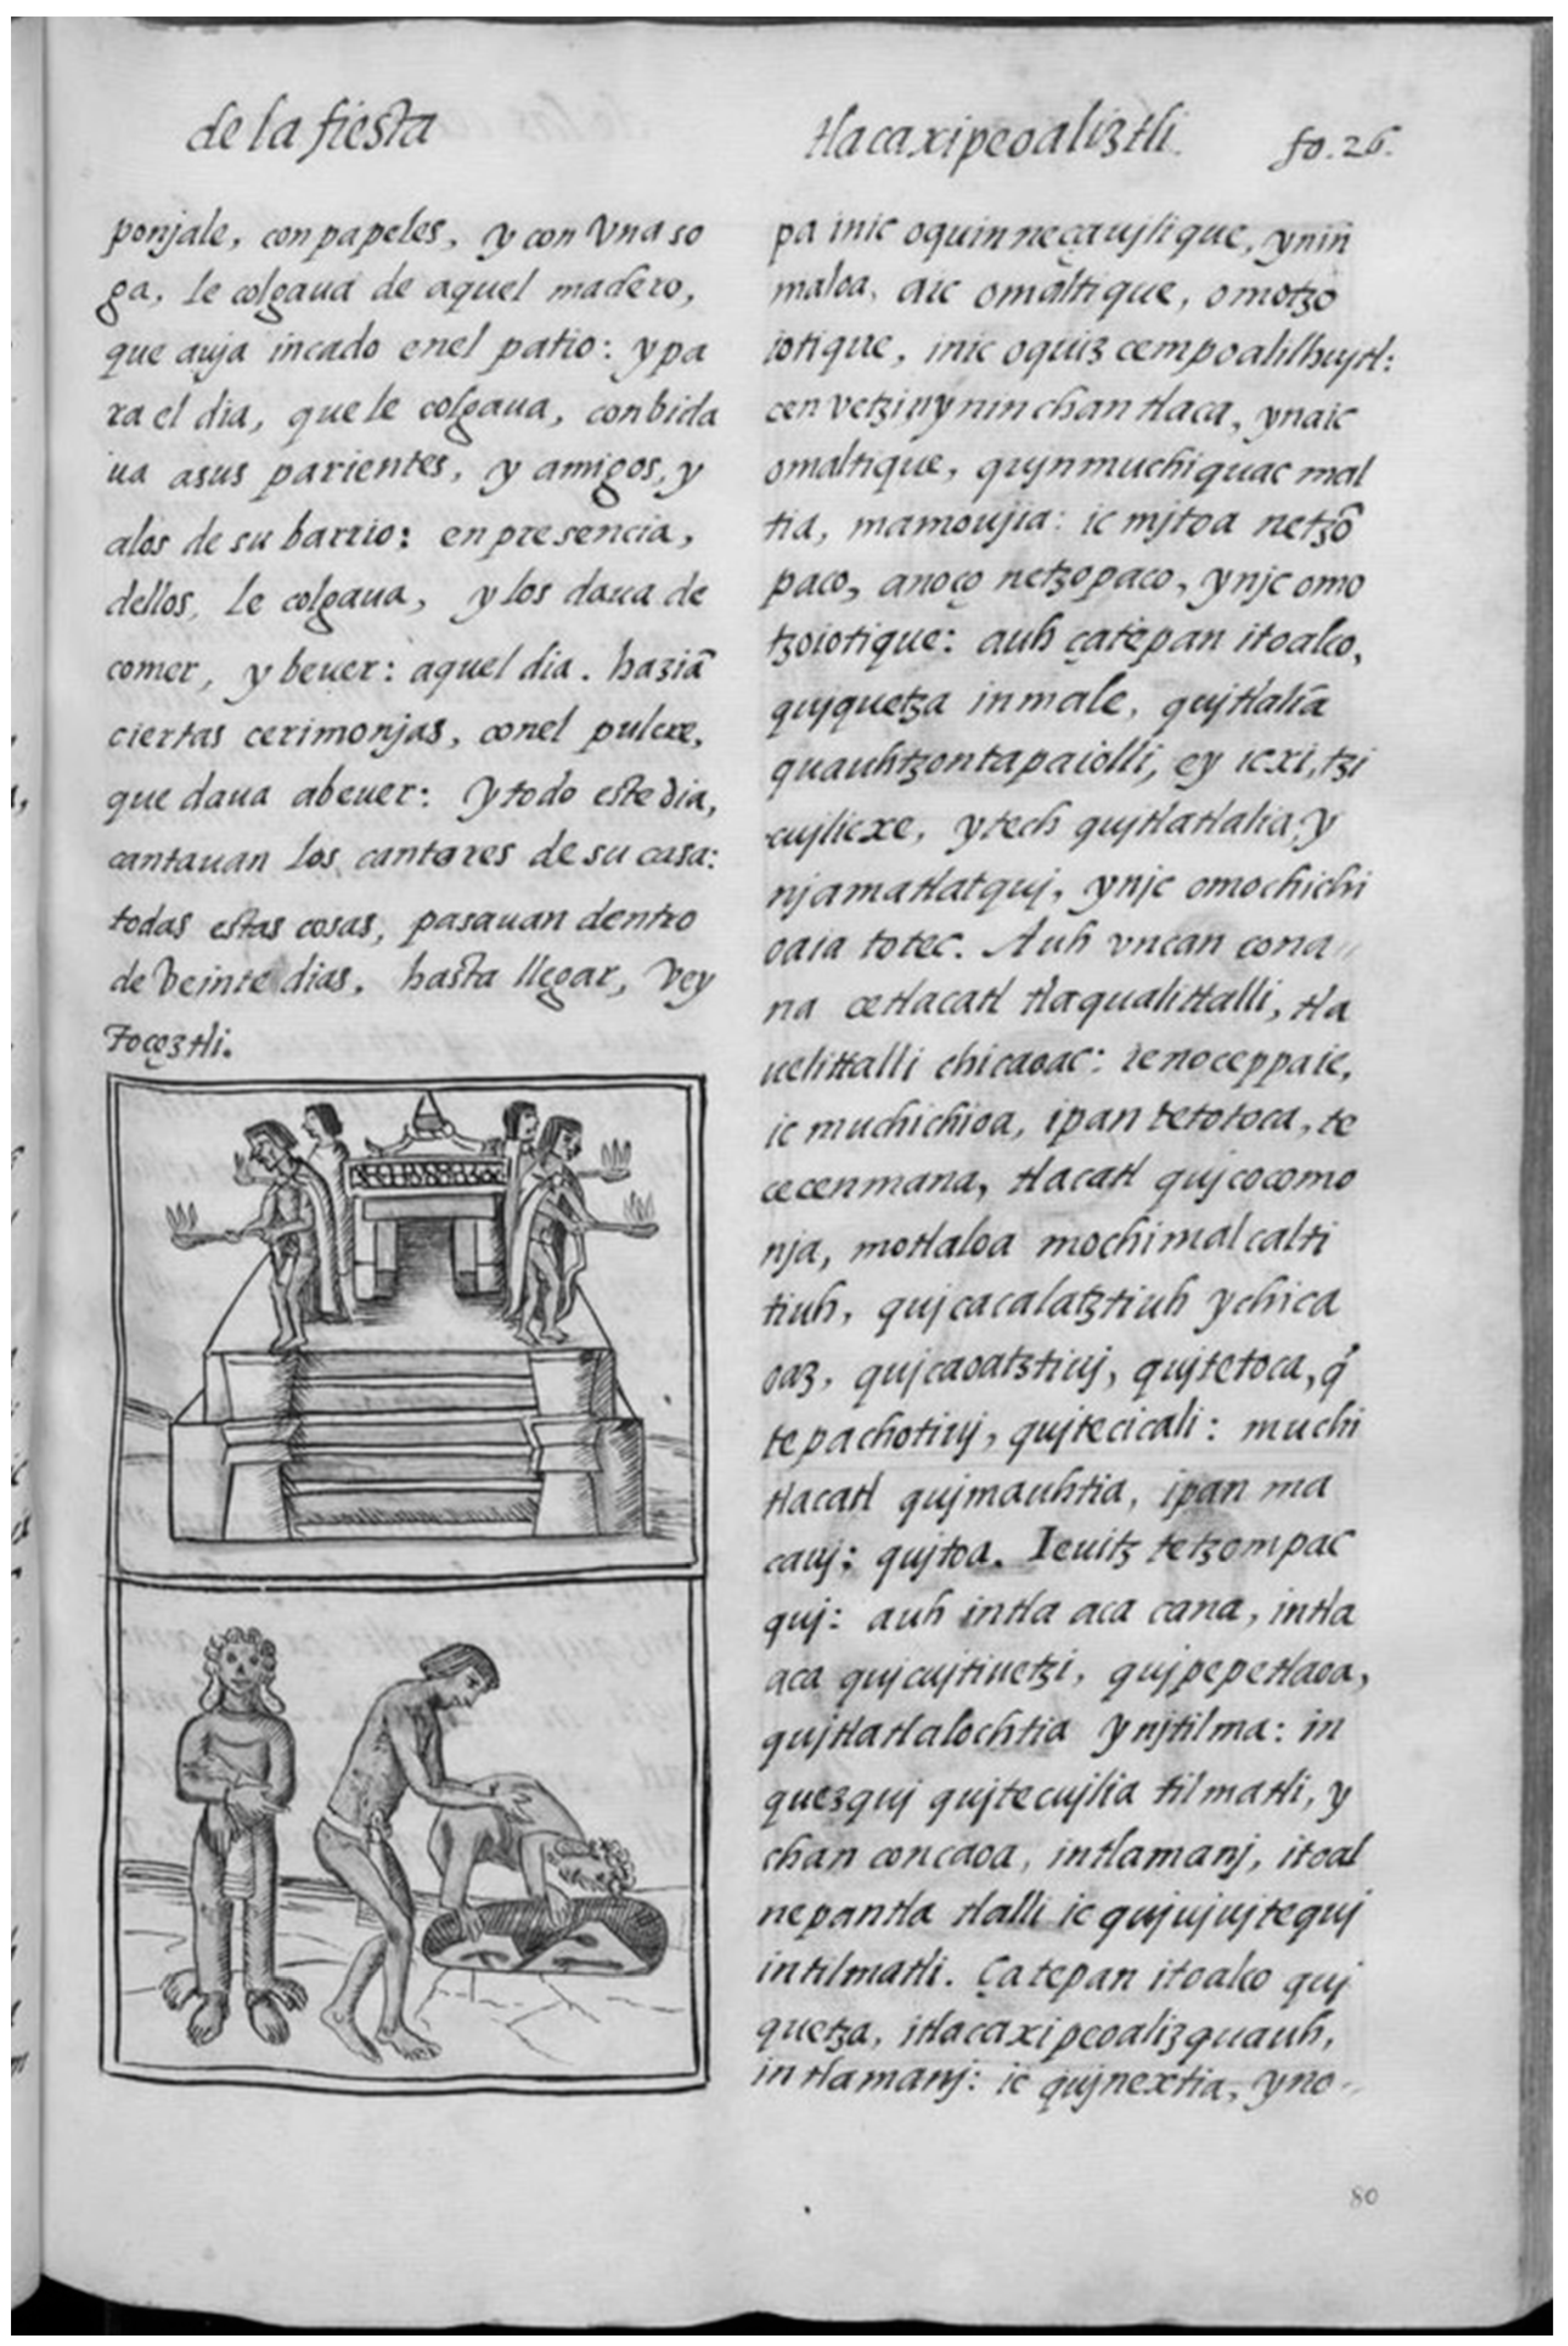 de la fiesta
tlacaxipeoaliztli.
fo. 26.
ponjale, con papeles, y con vna so
ga, le colgaua de aquel madero,
que auja incado enel patio: y pa
ra el dia, que le colgaua, conbida
ua asus parientes, y amigos, y
alos de su barrio: en presencia,
dellos, le colgaua, y los daua de
comer, y beuer: aquel dia. haziã
ciertas cerimonjas, conel pulcre,
que daua abeuer: y todo este dia,
cantauan los cantares de su casa:
todas estas cosas, pasauan dentro
de veinte dias, hasta llegar, vey
Toçoztli.
pa inic oquinneçaujlique, ynin̄
maloa, aic omaltique, omotzo
iotique, inic oquiz cempoalilhujtl:
cen vetzi yn nin chan tlaca, yn aic
omaltique, qujn muchi quac mal
tia, mamoujia: ic mjtoa netzõ
paco, anoço netzopaco, ynjc omo
tzoiotique: auh çatepan itoalco,
qujquetza in male, qujtlaliã
quauhtzontapaiolli, ey icxi, tzi
cujlicxe, ytech qujtlatlalia, y
njamatlatquj, ynjc omochichi
oaia totec. Auh vncan cona
na ce tlacatl tlaqualittalli, tla
uelittalli chicaoac: ie no ceppa ie,
ic muchichioa, ipan tetotoca, te
cecenmana, tlacatl qujcocomo
nja, motlaloa mochimalcalti
tiuh, qujcacalatztiuh ychica
oaz, qujcaoatztiuj, qujtetoca, q̉
tepachotiuj, qujtecicali: muchi
tlacatl qujmauhtia, ipan ma
cauj: qujtoa. Ieuitz tetzompac
quj: auh intla aca cana, intla
aca qujcujtiuetzi, qujpepetlaoa,
qujtlatlalochtia ynjtilma: in
quezquj qujtecujlia tilmatli, y
chan concaoa, in tlamanj, itoal
nepantla tlalli ic qujujujtequj
in tilmatli. Çatepan itoalco quj
quetza, itlacaxipeoalizquauh,
in tlamanj: ic qujnextia, yno
80